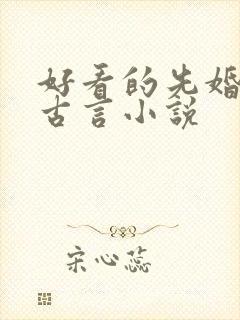 好看的先婚
古言小说
宋心蕊